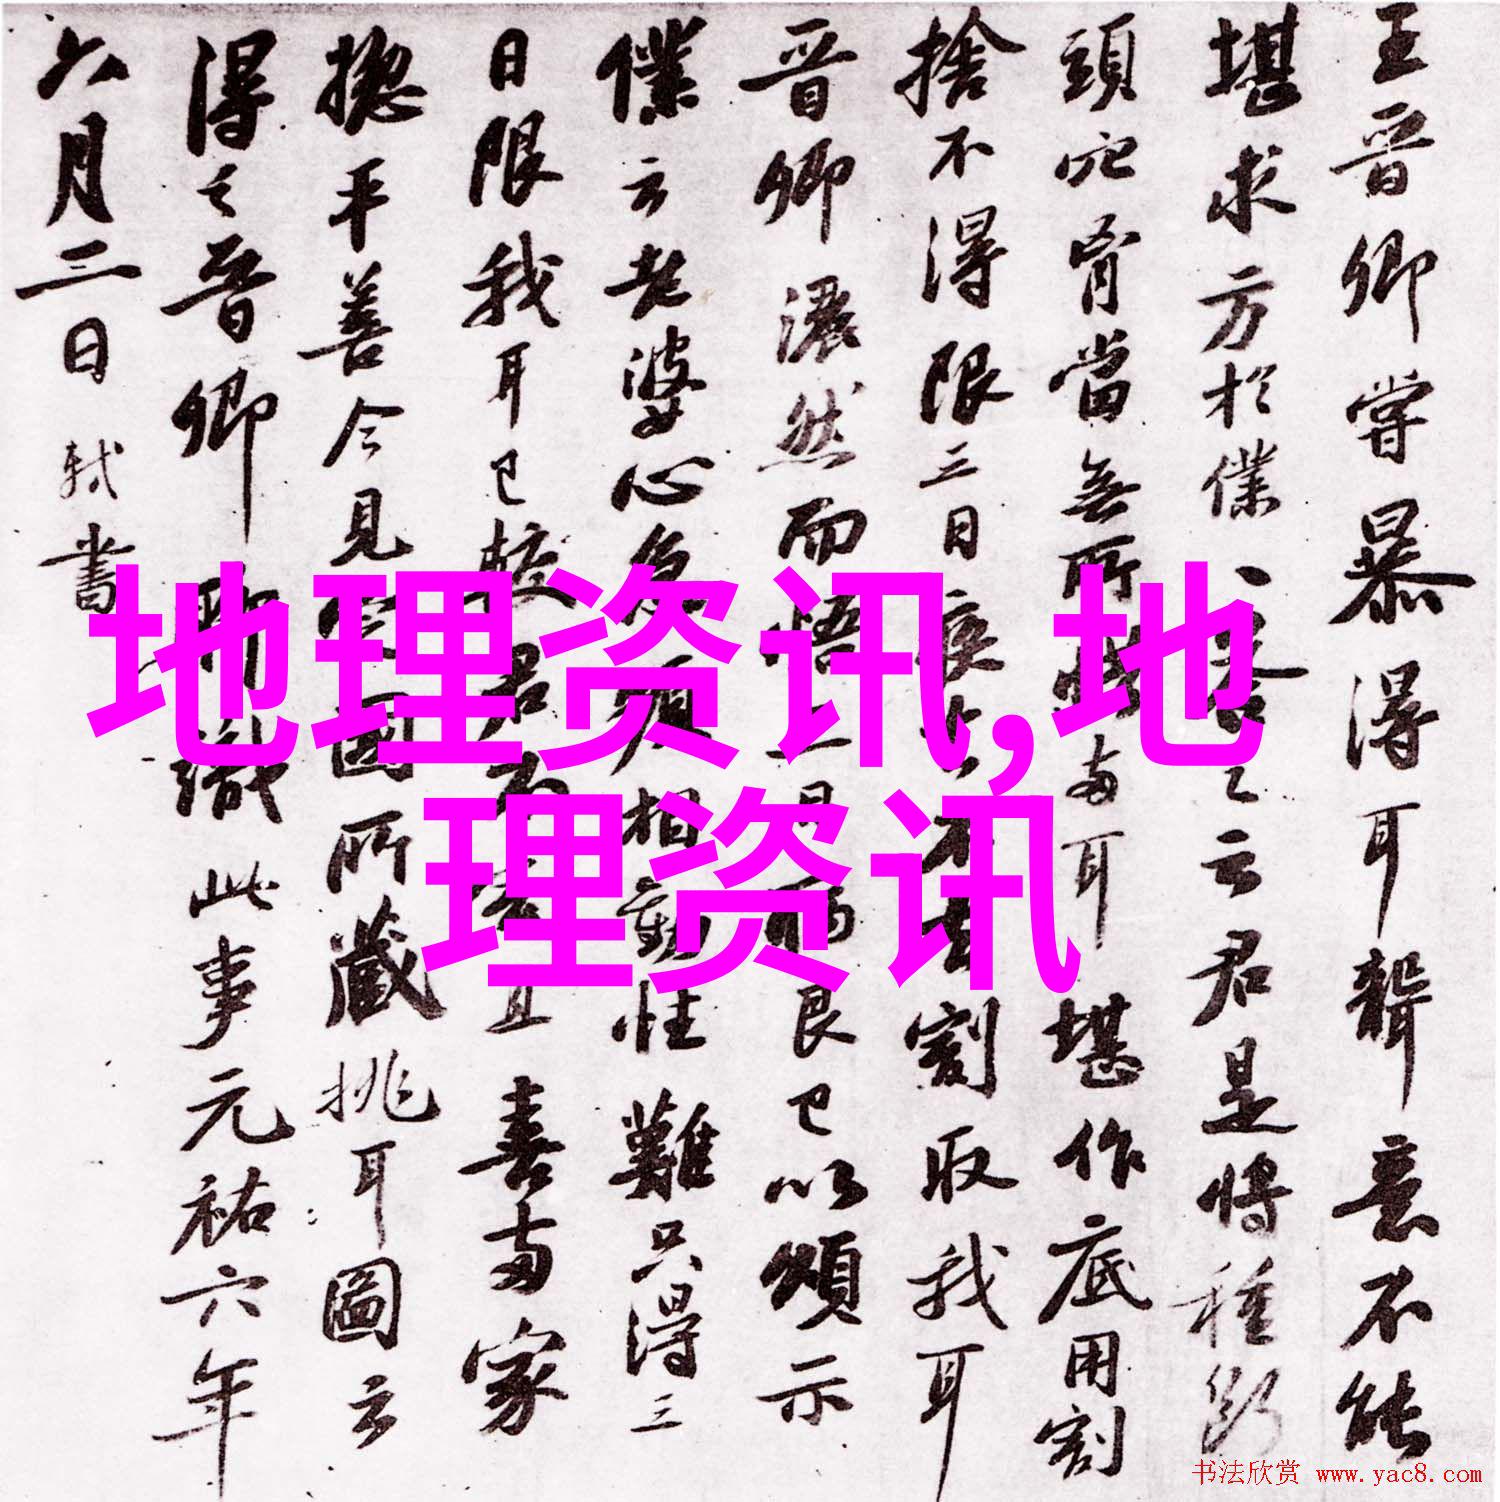 王晉卿嘗暴得耳聾意不能
堪求方於僕僕答之云君是將種斷
頭穴胷當無所惜兩耳堪作底用割
捨不得限三日疾去不去割取我耳
晉卿灑然而悟三日病良已以頌示
僕云老婆心急頻相勸性難只得三
日限我耳已較君不割且喜兩家
揔平善今見定國所藏挑耳圖云
得之晉卿聊識此事元祐六年
六月三日軾書
地理资讯,地
理资讯
书法欣赏 www.yac8.com